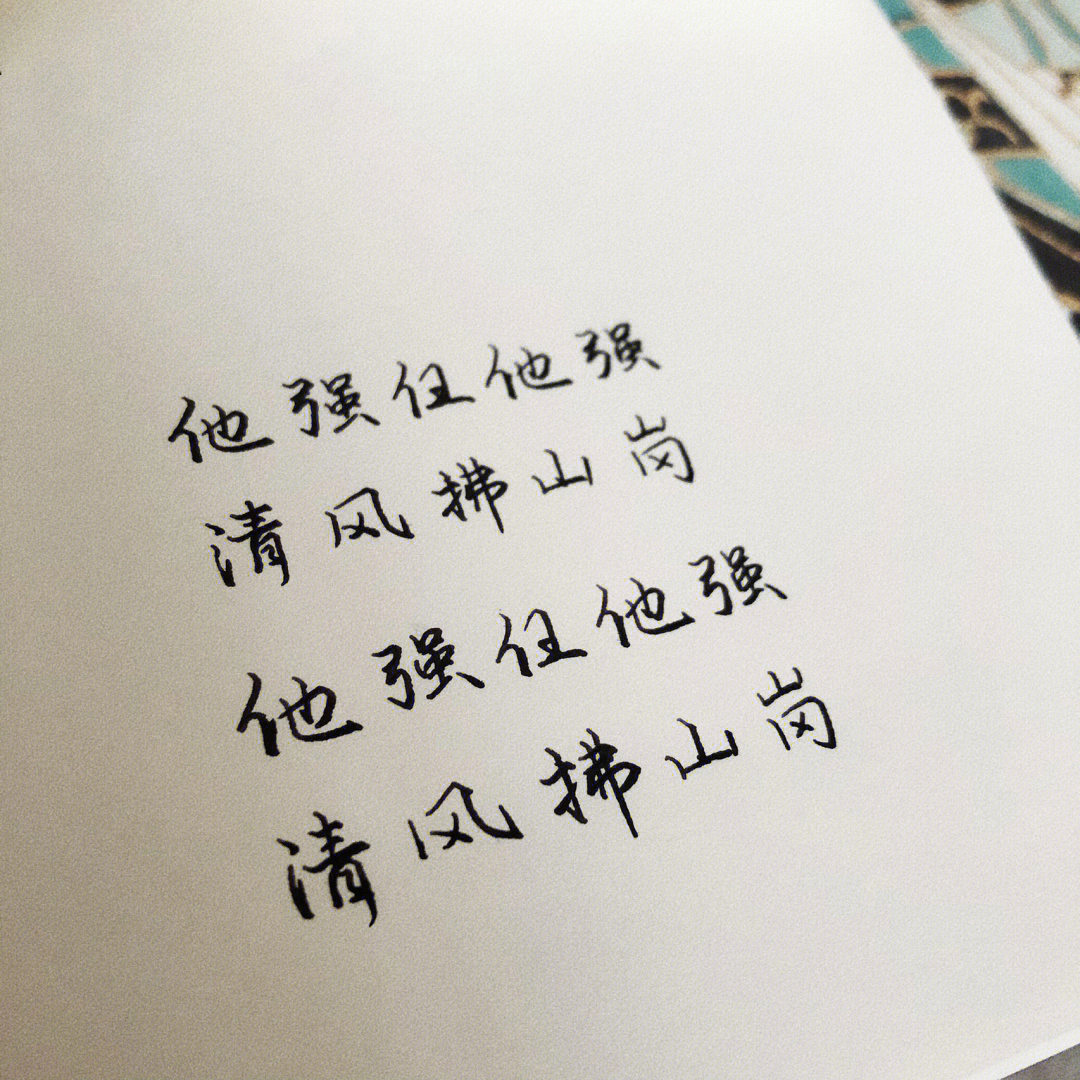 他强任他强
清风拂山岗
他强任他强
清风拂山岗